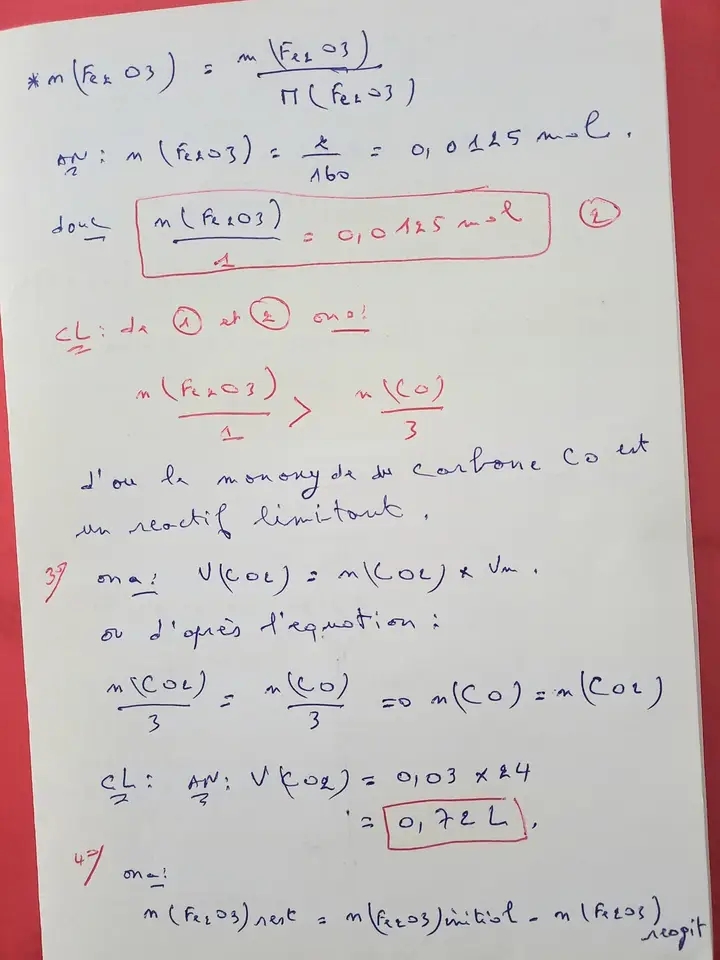 * n(Fe2O3) = m(Fe2O3) / M(Fe2O3)
AN : n(Fe2O3) = 2/160 = 0,0125 mol.
donc n(Fe2O3)/1 = 0,0125 mol ②
CL : de ① et ② on a :
n(Fe2O3)/1 > n(CO)/3
d'ou le monoxyde de carbone CO est
un reactif limitant.
3°/ on a : V(CO2) = n(CO2) × Vm.
or d'après l'equation :
n(CO2)/3 = n(CO)/3 => n(CO) = n(CO2)
CL : AN : V(CO2) = 0,03 × 24
= 0,72 L.
4°/ on a :
n(Fe2O3)rest = n(Fe2O3)initial - n(Fe2O3)reagit